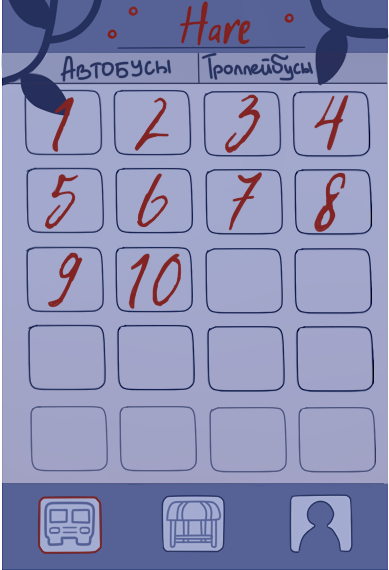 Hare
Автобусы Троллейбусы
1 2 3 4
5 6 7 8
9 10